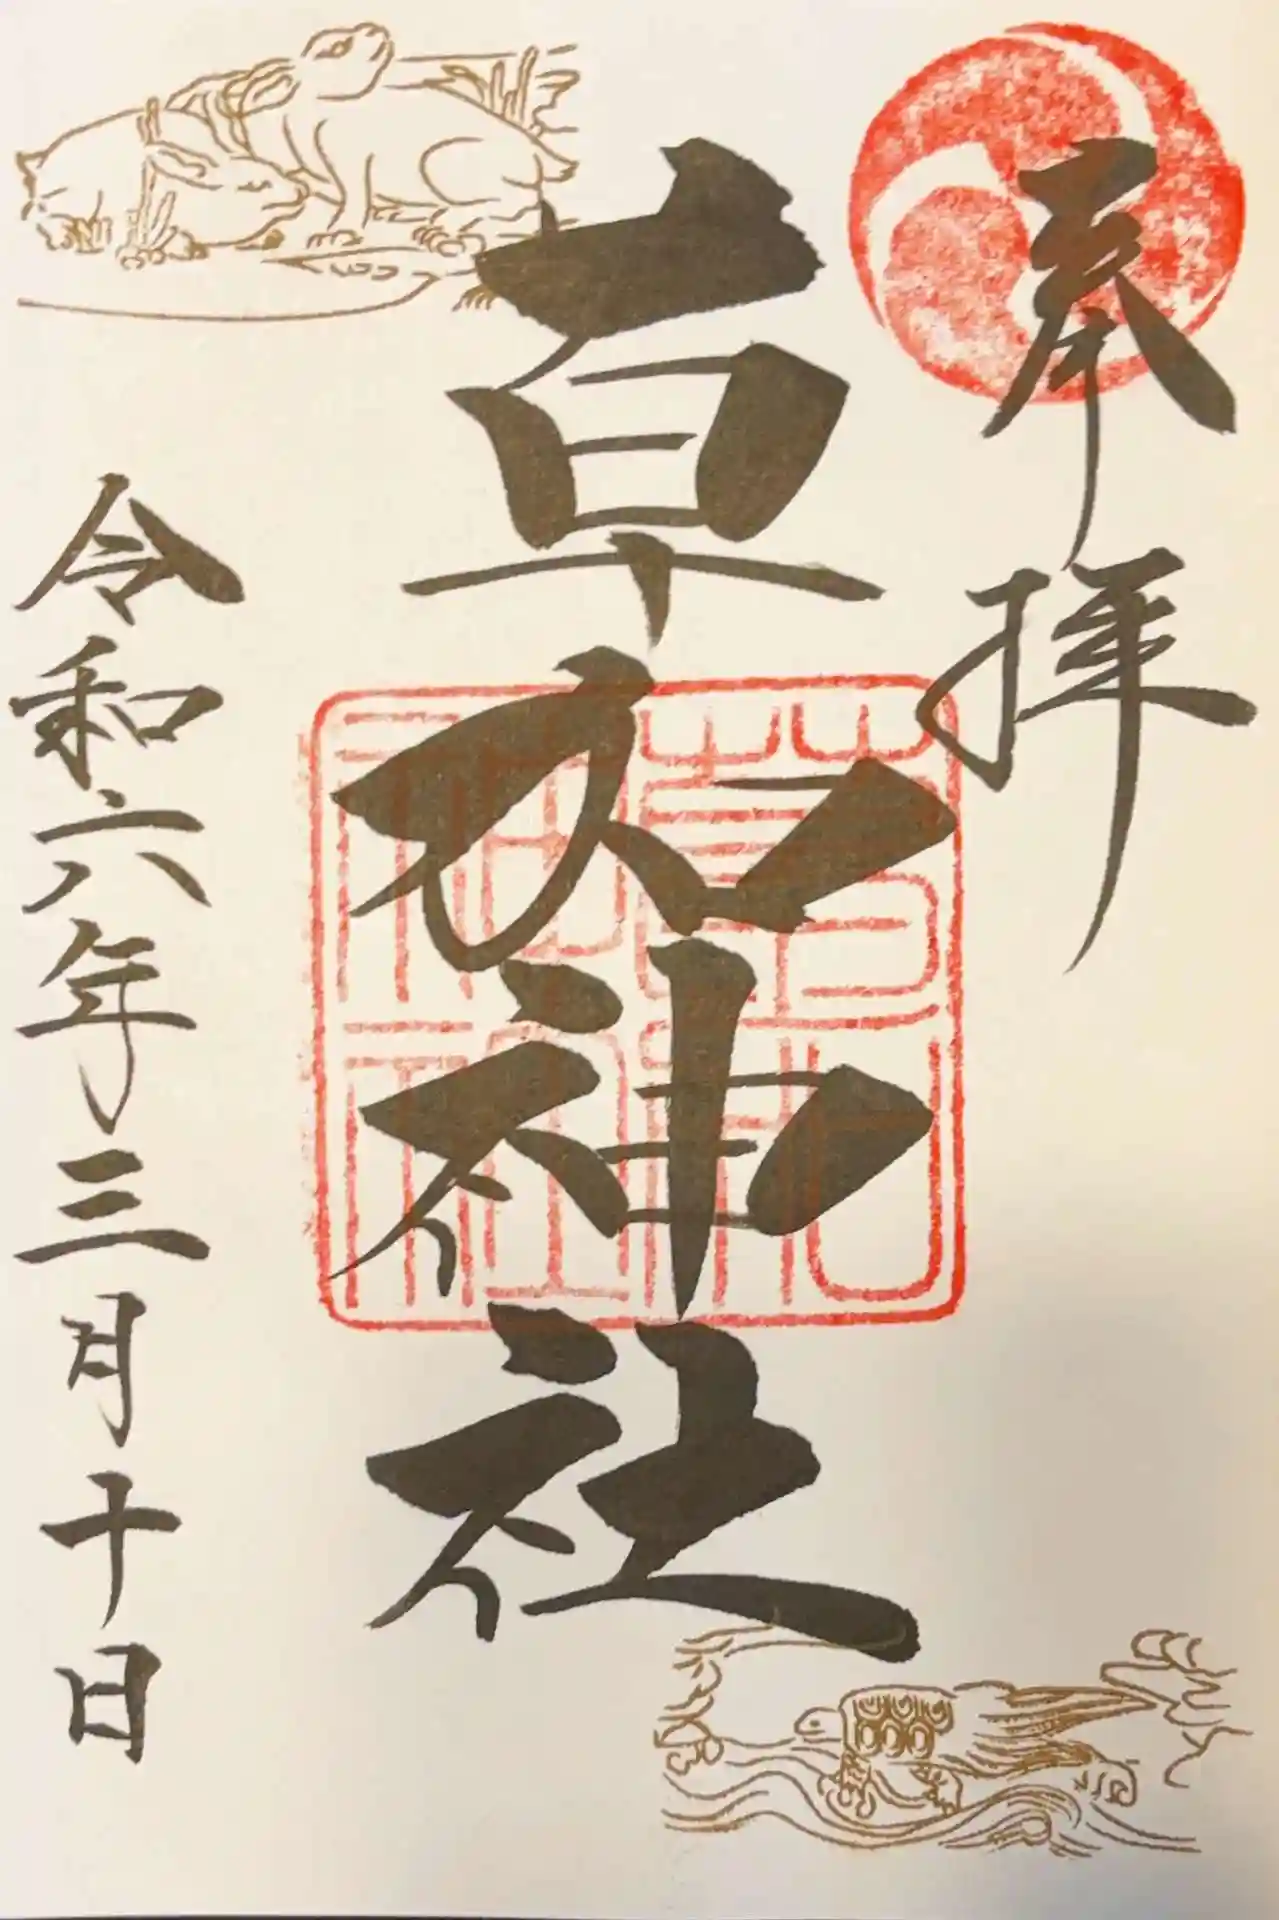 奉拝
草加神社
草加
神社
令和六年三月十日